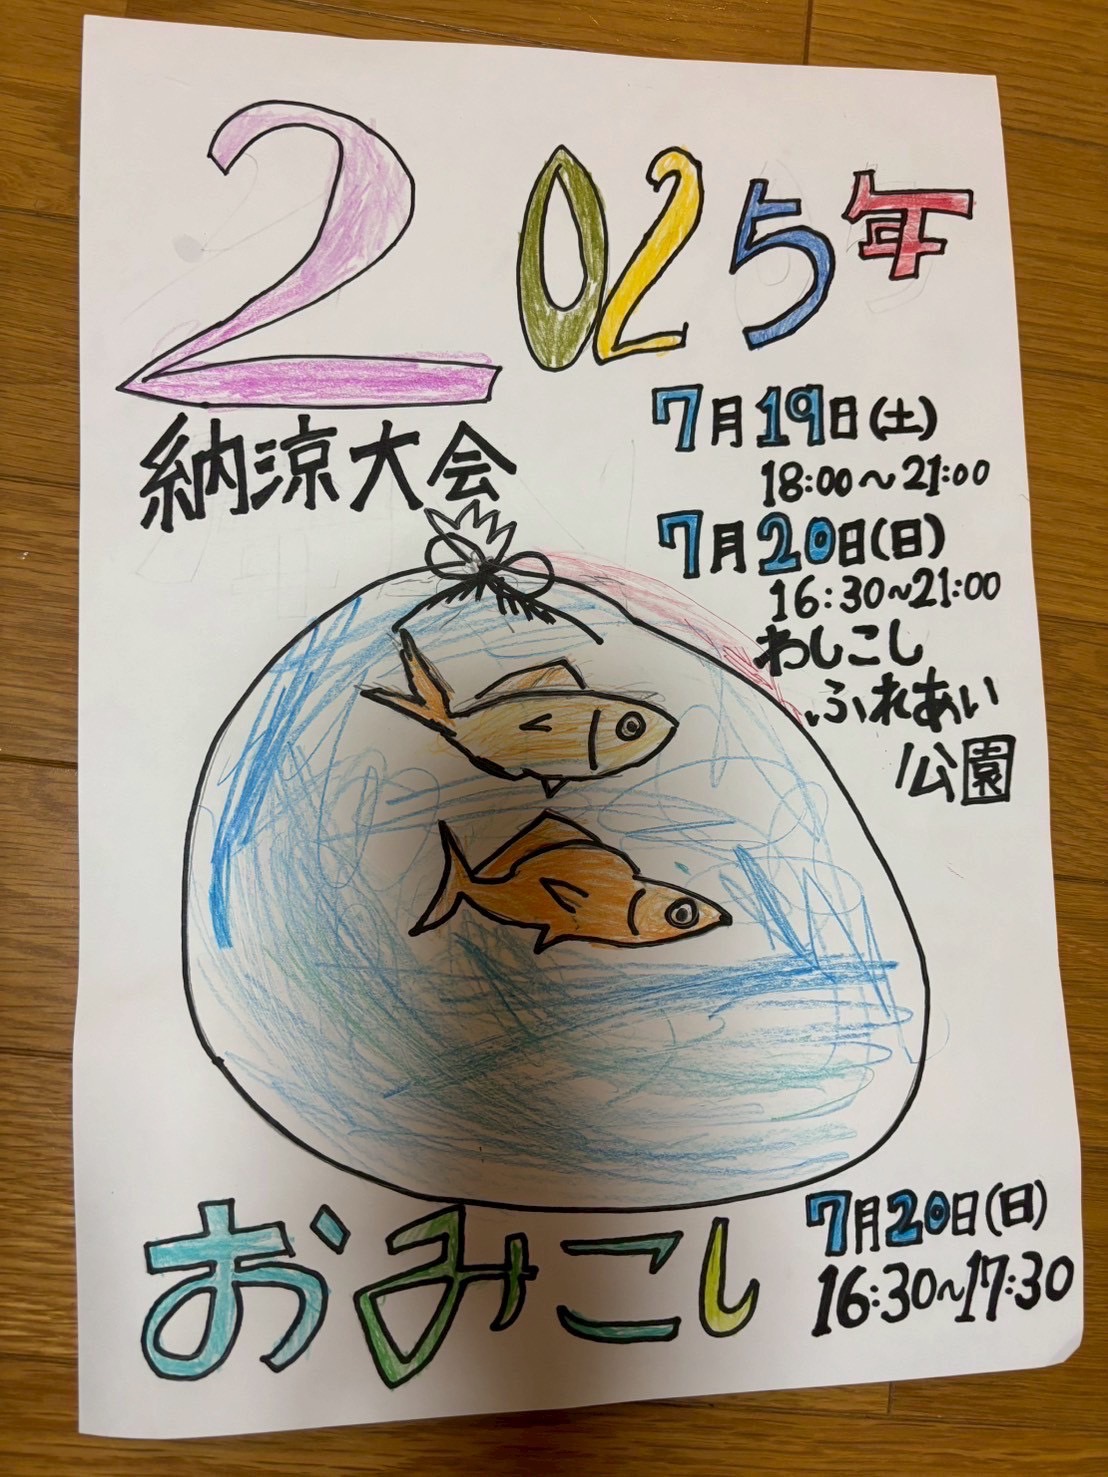 2025年
納涼大会
7月19日(土)
18:00〜21:00
7月20日(日)
16:30〜21:00
わしこし
ふれあい
公園
おみこし
7月20日(日)
16:30〜17:30